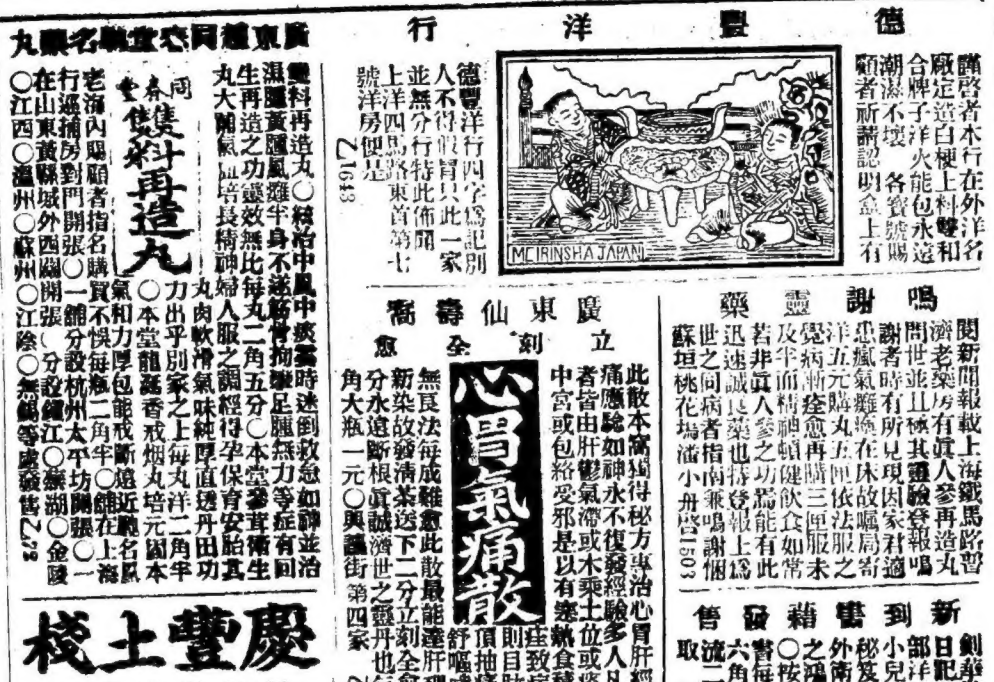 德豐洋行
謹啓者本行在外洋名
廠定造白梗上料雙和
合牌子洋火能包永遠
潮濕不壞 各寶號賜
顧者祈請認明盒上有
MEIRINSHA JAPAN
德豐洋行四字為記別
人不得假冒只此一家
並無分行特此佈聞
上洋四馬路東首第七
號洋房便是
Z1643
鳴謝靈藥
閱新聞報載上海鐵馬路
濟老藥房有眞人參再造丸
問世並且極其靈驗登報鳴
謝者時有所見現因家君適
患瘋氣癱瘓在床故囑局寄
洋五元購丸五匣依法服之
覺病漸痊愈再購三匣服未
及半而精神頓健飲食如常
若非眞人參之功焉能有此
迅速誠良藥也特登報上爲
世之同病者指南兼鳴謝悃
蘇垣桃花塢潘小舟啓1503
新到書籍發售
日記
部洋
小兒
秘笈
外衛
之鴻
○按
書每
六角
流一
取
廣東仙壽齋
立刻全愈
心胃氣痛散
此散本齋獨得秘方專治心胃肝
痛應驗如神永不復發經驗多人凡
者皆由肝鬱氣滯或木乘土位或
中宮或包絡受邪是以有寒熱食積
症致
則目
頂抽
舒嘔
無良法每成難愈此散最能達肝理
新染故發清茶送下二分立刻全愈
分水遠斷根眞誠濟世之靈丹也每
角大瓶一元○興讓街第四家
廣東種同春堂馳名蠟丸
雙料再造丸○統治中風中痰霎時迷倒救急如神並治
濕腫黃腫風癱半身不遂筋骨拘攣足腫無力等症有回
生再造之功靈效無比每丸二角五分○本堂參茸衛生
丸大開氣血培長精神婦人服之調經得孕保育安胎其
同春堂
雙料再造丸
丸肉軟滑氣味純厚直透丹田功
力出乎別家之上每丸洋二角半
○本堂龍涎香戒烟丸培元固本
氣和力厚包能戒斷遠近馳名
老海內賜顧者指名購買不悞每瓶二角半○舖在上海
行遥捕房對門開張○一舖分設杭州太平坊開張○一
在山東黃縣城外西關開張 分設鎮江○蕪湖○金陵
○江西○溫州○蘇州○江陰○無錫等處發售
慶豐土棧